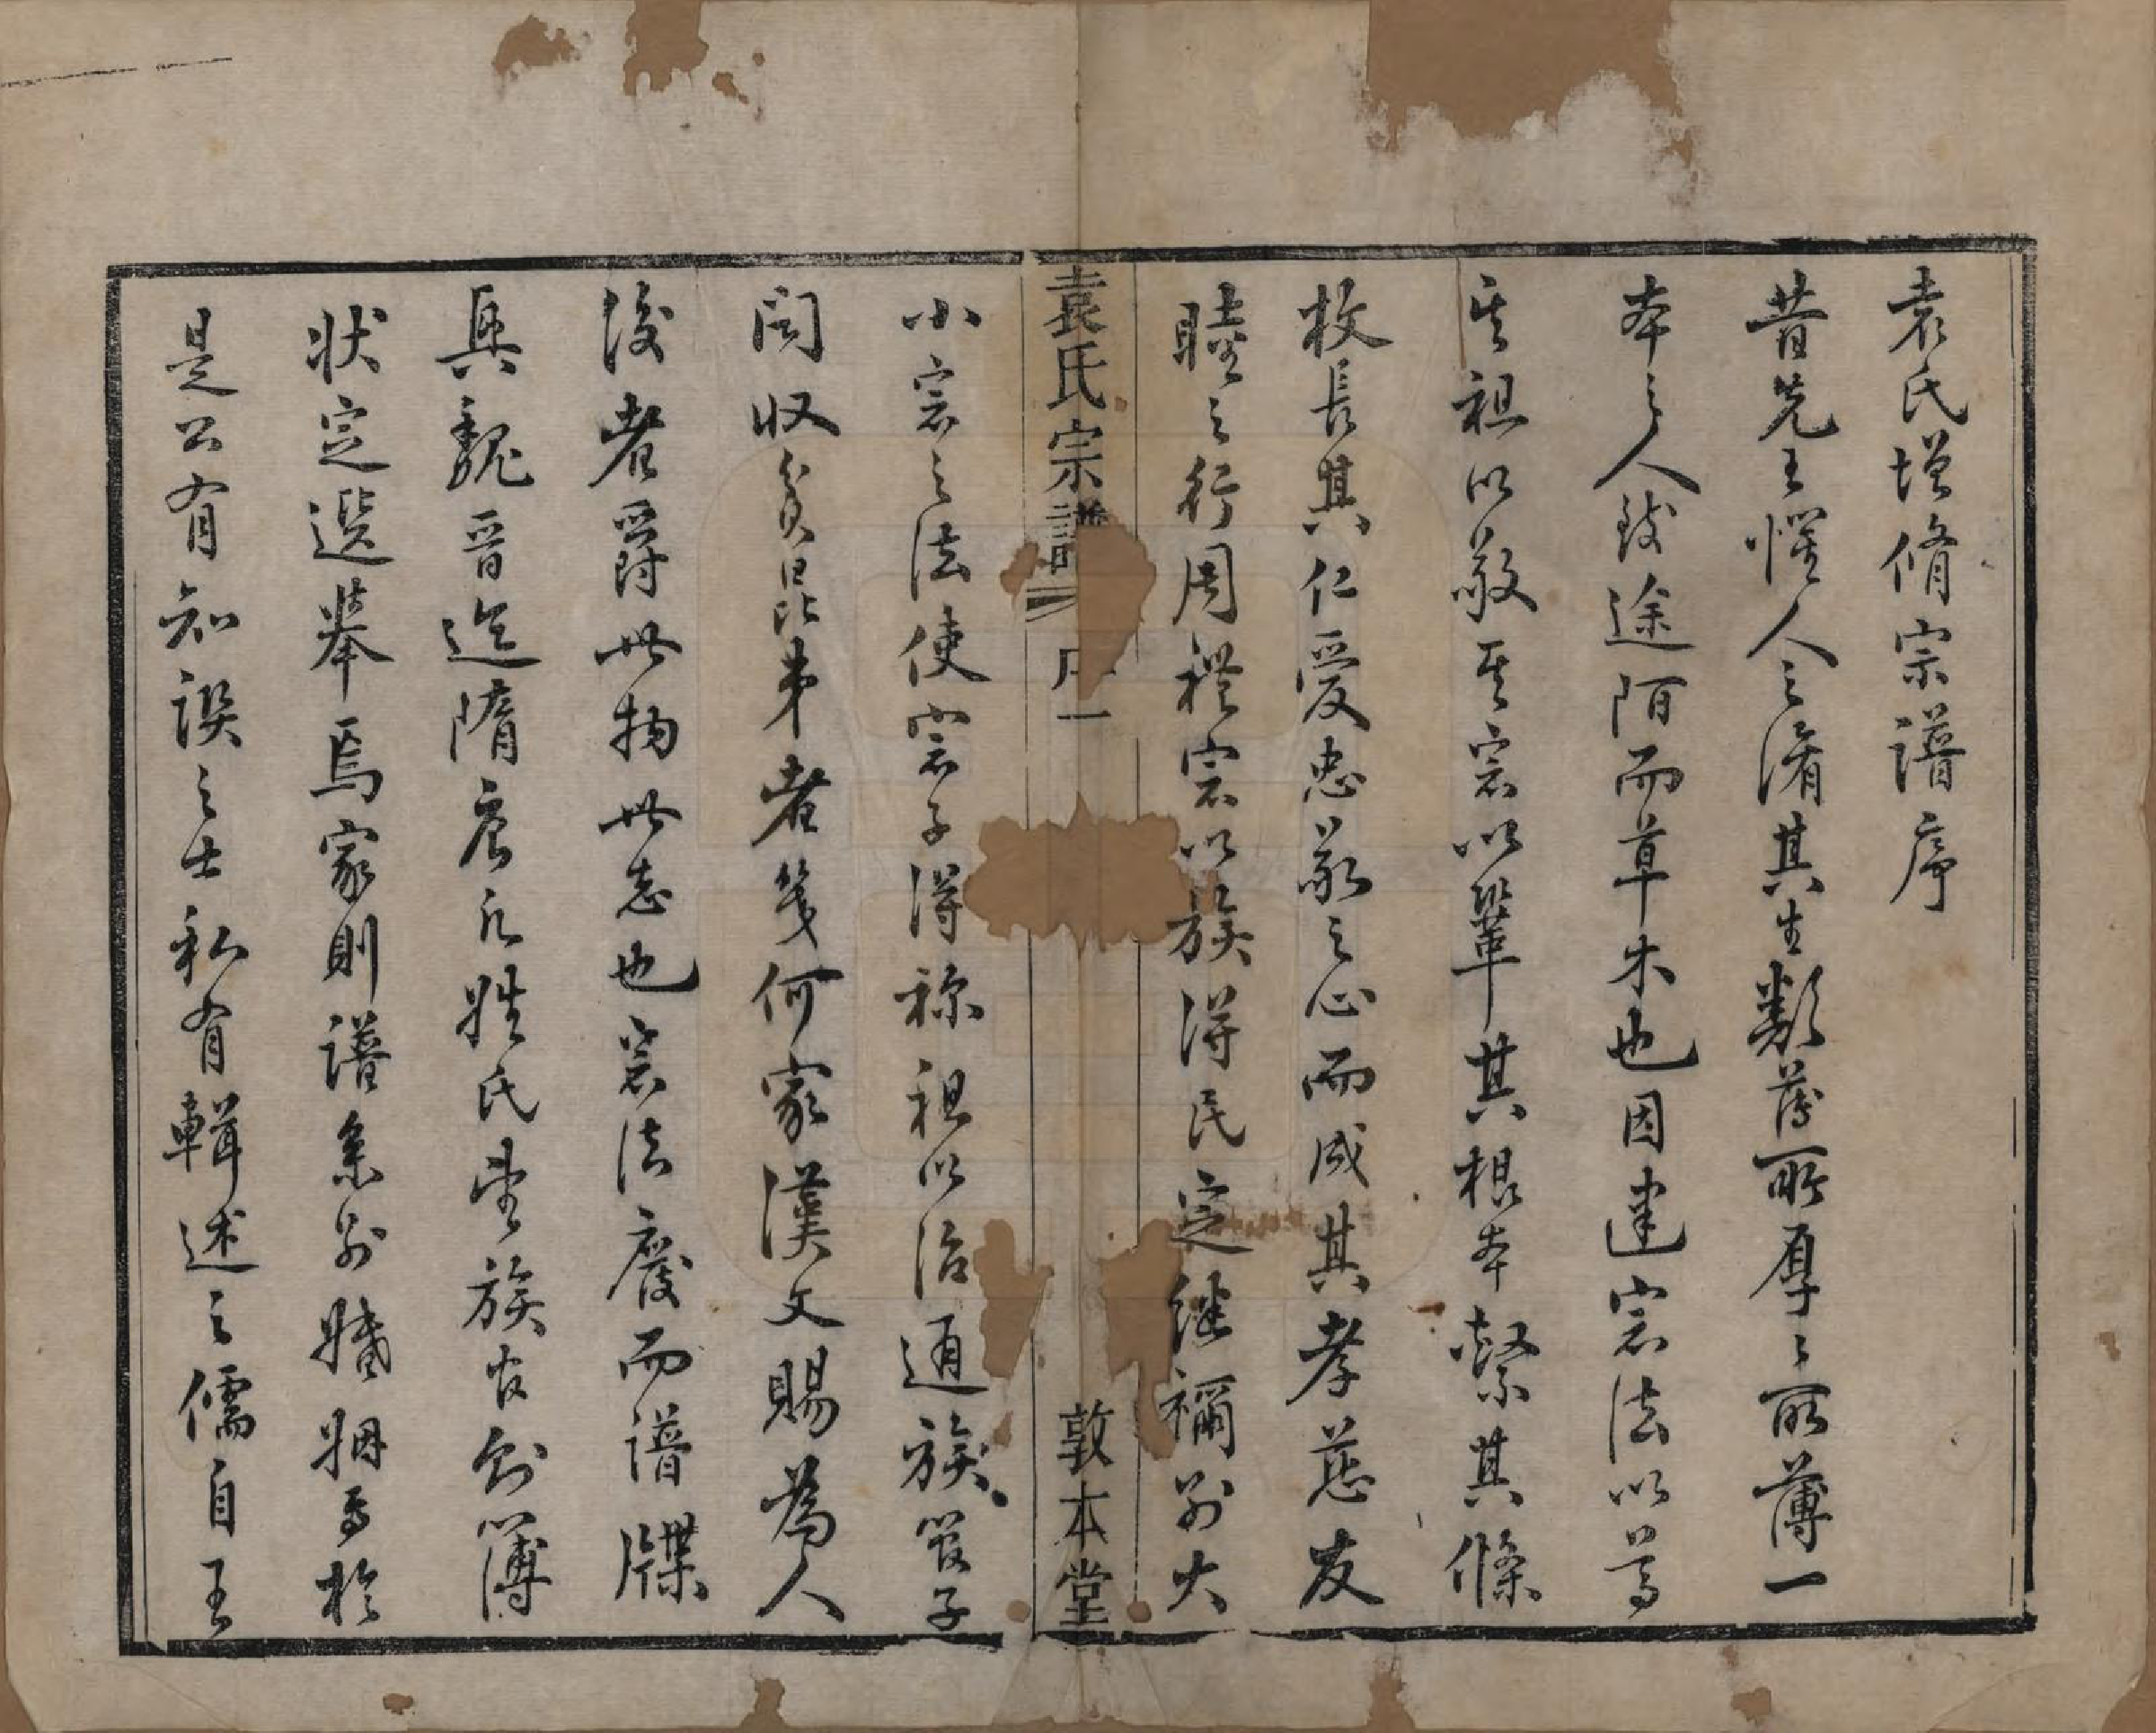 袁氏增脩宗譜序
昔先王懼人之淆其生類薄所厚之所薄一
本之人致途陌而草木也因建宗法以尊
其祖以敬其宗以鞏其根本繫其條
枚長其仁愛忠敬之心而成其孝慈友
睦之行周禮宗以族得民定繼禰別大
袁氏宗譜 序一 敦本堂
小宗之法使宗子得祢祖以治通族管子
問收貧昆弟者幾何家漢文賜爲人
後者爵此物此志也宗法廢而譜牒
興魏晉迄隋唐凡姓氏望族官創簿
狀定選舉焉家則譜系別婚姻焉於
是公有知譔之士私有輯述之儒自王